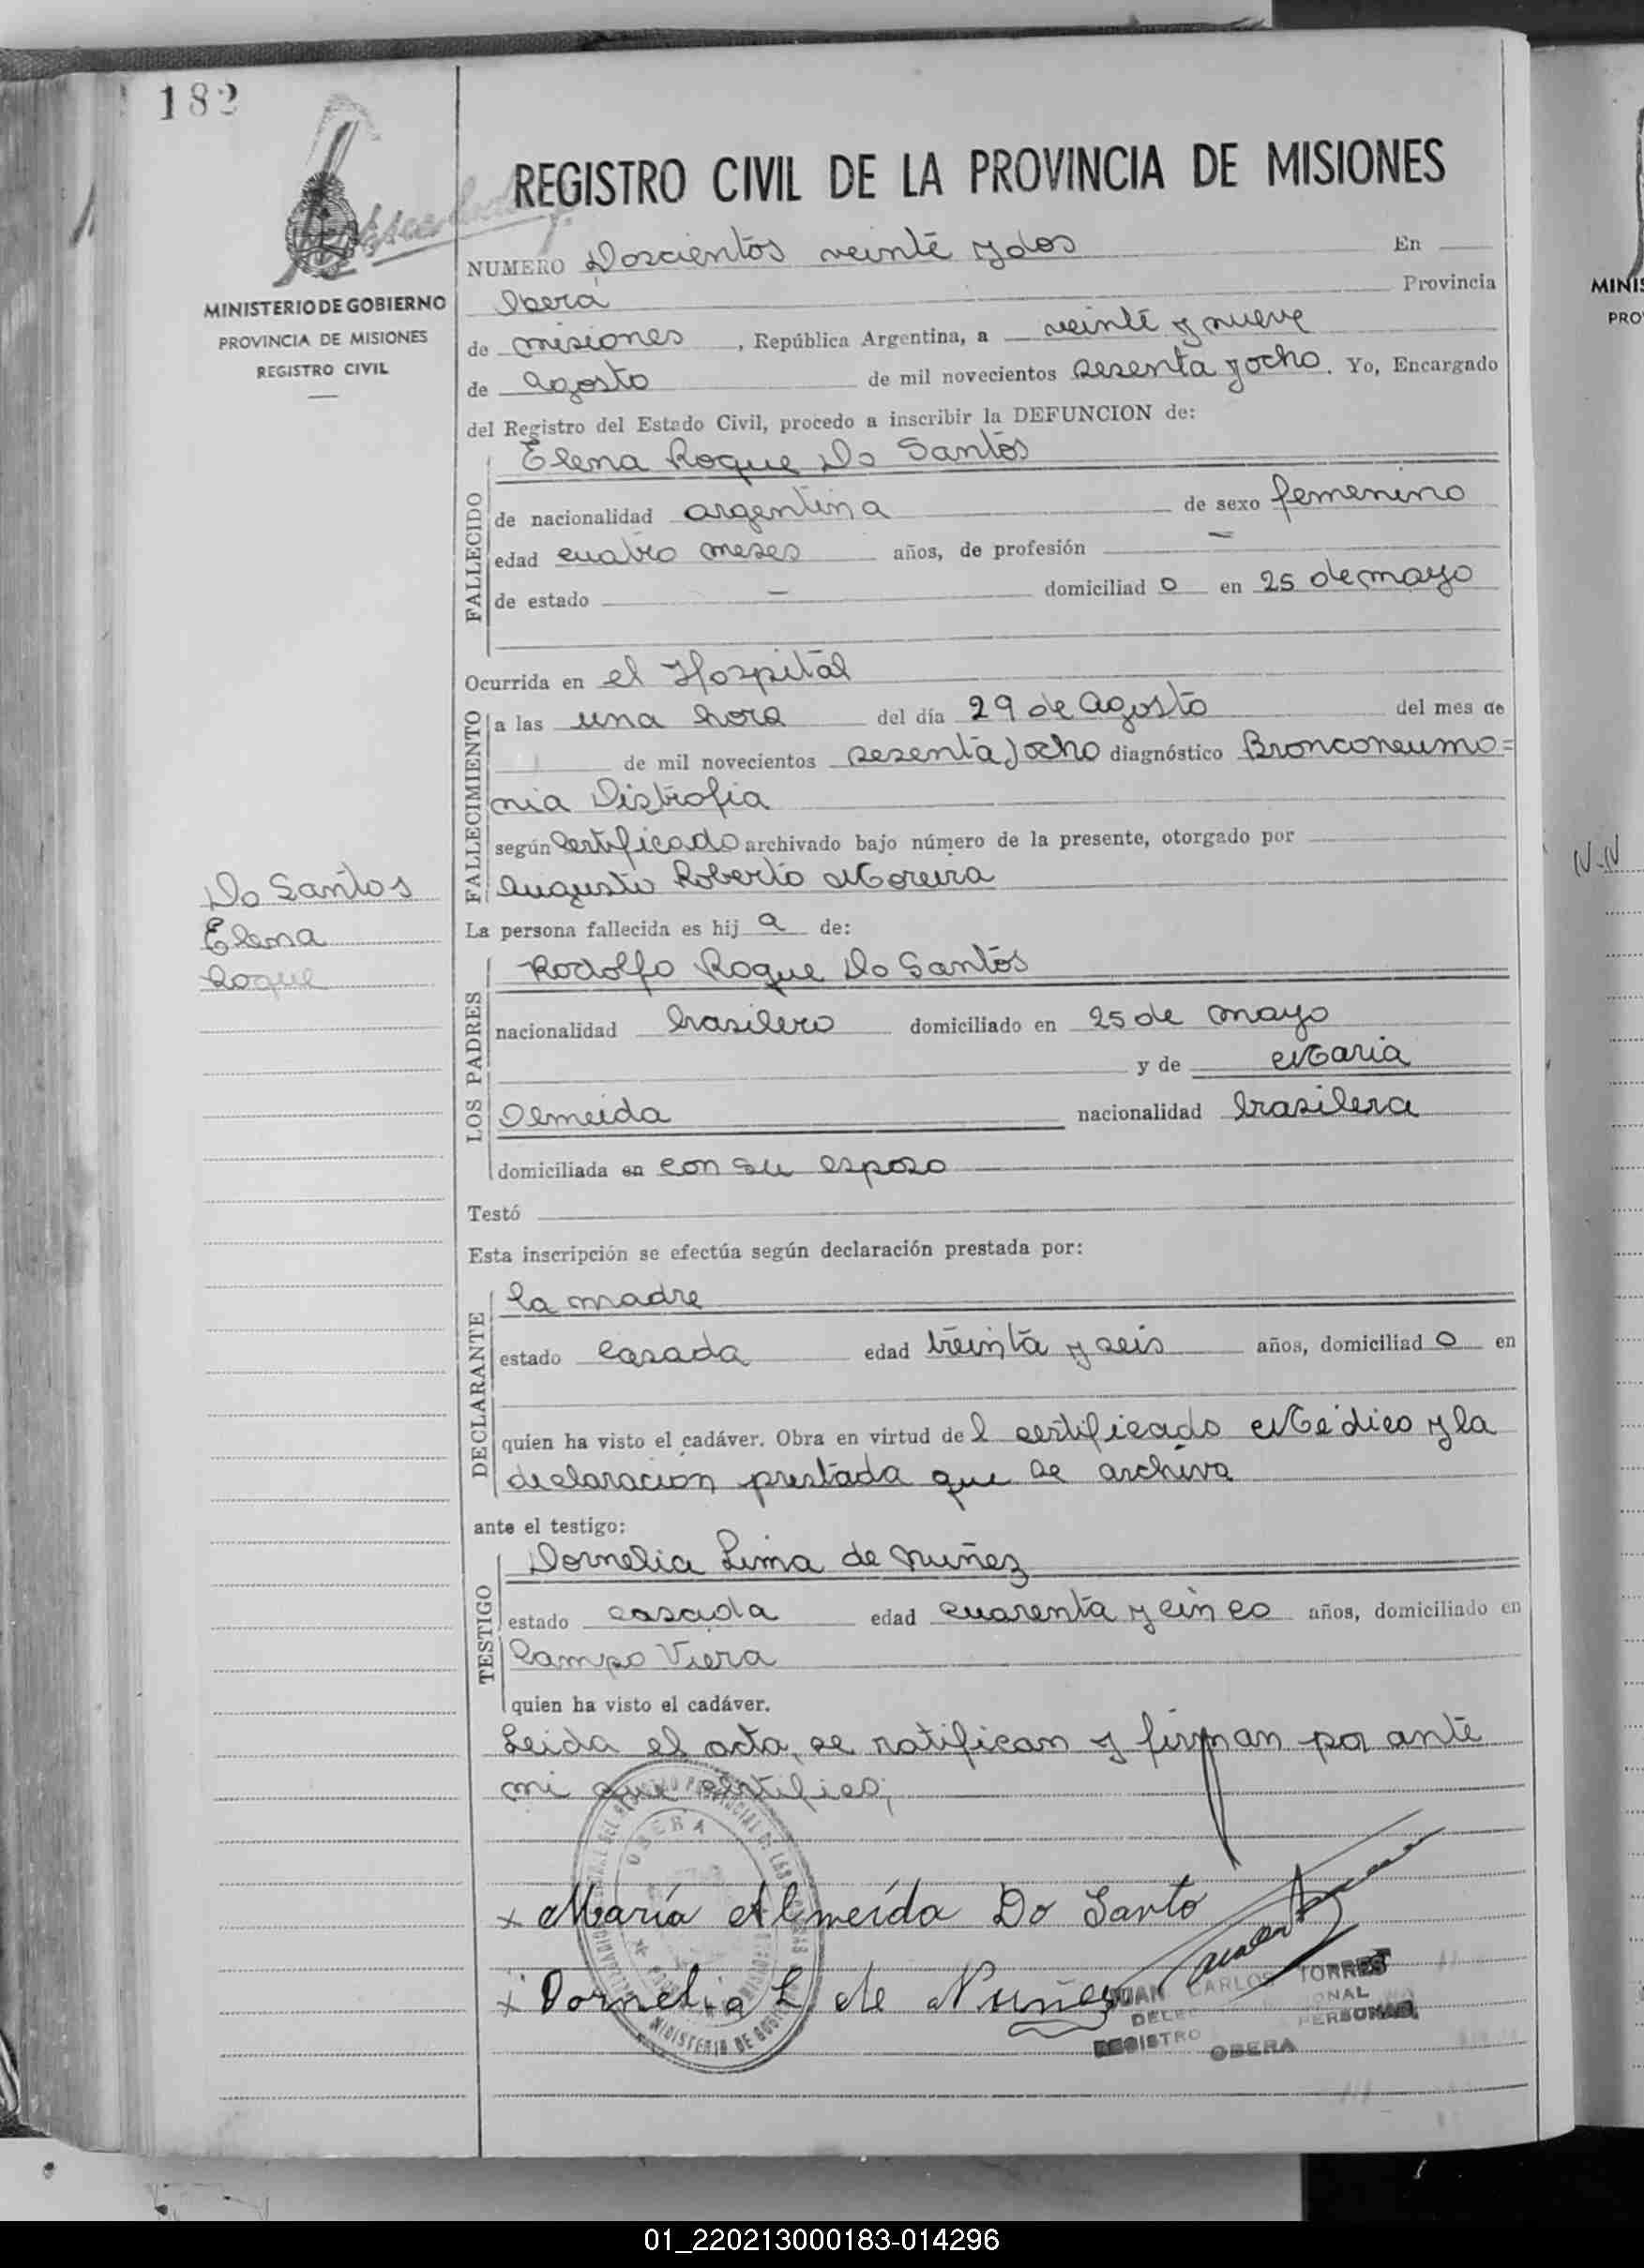 182
REGISTRO CIVIL DE LA PROVINCIA DE MISIONES
MINISTERIO DE GOBIERNO
PROVINCIA DE MISIONES
REGISTRO CIVIL
NUMERO Doscientos veinte y dos En
Oberá Provincia
de misiones, República Argentina, a veinte y nueve
de agosto de mil novecientos sesenta y ocho. Yo, Encargado
del Registro del Estado Civil, procedo a inscribir la DEFUNCION de:
FALLECIDO
Elena Roque Do Santos
de nacionalidad argentina de sexo femenino
edad cuatro meses años, de profesión —
de estado — domiciliad o en 25 de mayo
Ocurrida en el Hospital
FALLECIMIENTO
a las una hora del día 29 de agosto del mes de
de mil novecientos sesenta y ocho diagnóstico Bronconeumo=
nia Distrofia
según certificado archivado bajo número de la presente, otorgado por
Augusto Roberto Moreira
Do Santos
Elena
Roque
La persona fallecida es hij a de:
LOS PADRES
Rodolfo Roque Do Santos
nacionalidad brasilero domiciliado en 25 de mayo
y de Maria
Olmeida nacionalidad brasilera
domiciliada en con su esposo
Testó
Esta inscripción se efectúa según declaración prestada por:
DECLARANTE
la madre
estado casada edad treinta y seis años, domiciliad o en
quien ha visto el cadáver. Obra en virtud de l certificado Médico y la
declaración prestada que se archiva
ante el testigo:
TESTIGO
Dornelia Lima de Nuñez
estado casada edad cuarenta y cinco años, domiciliado en
Campo Viera
quien ha visto el cadáver.
Leida el acta, se ratifican y firman por ante
mi que certifico;
OBERA
x María Almeída Do Santo
x Dornelia L. de Nuñez
JUAN CARLOS TORRES
REGISTRO
OBERA
MINI
PRO
N-N
01_220213000183-014296